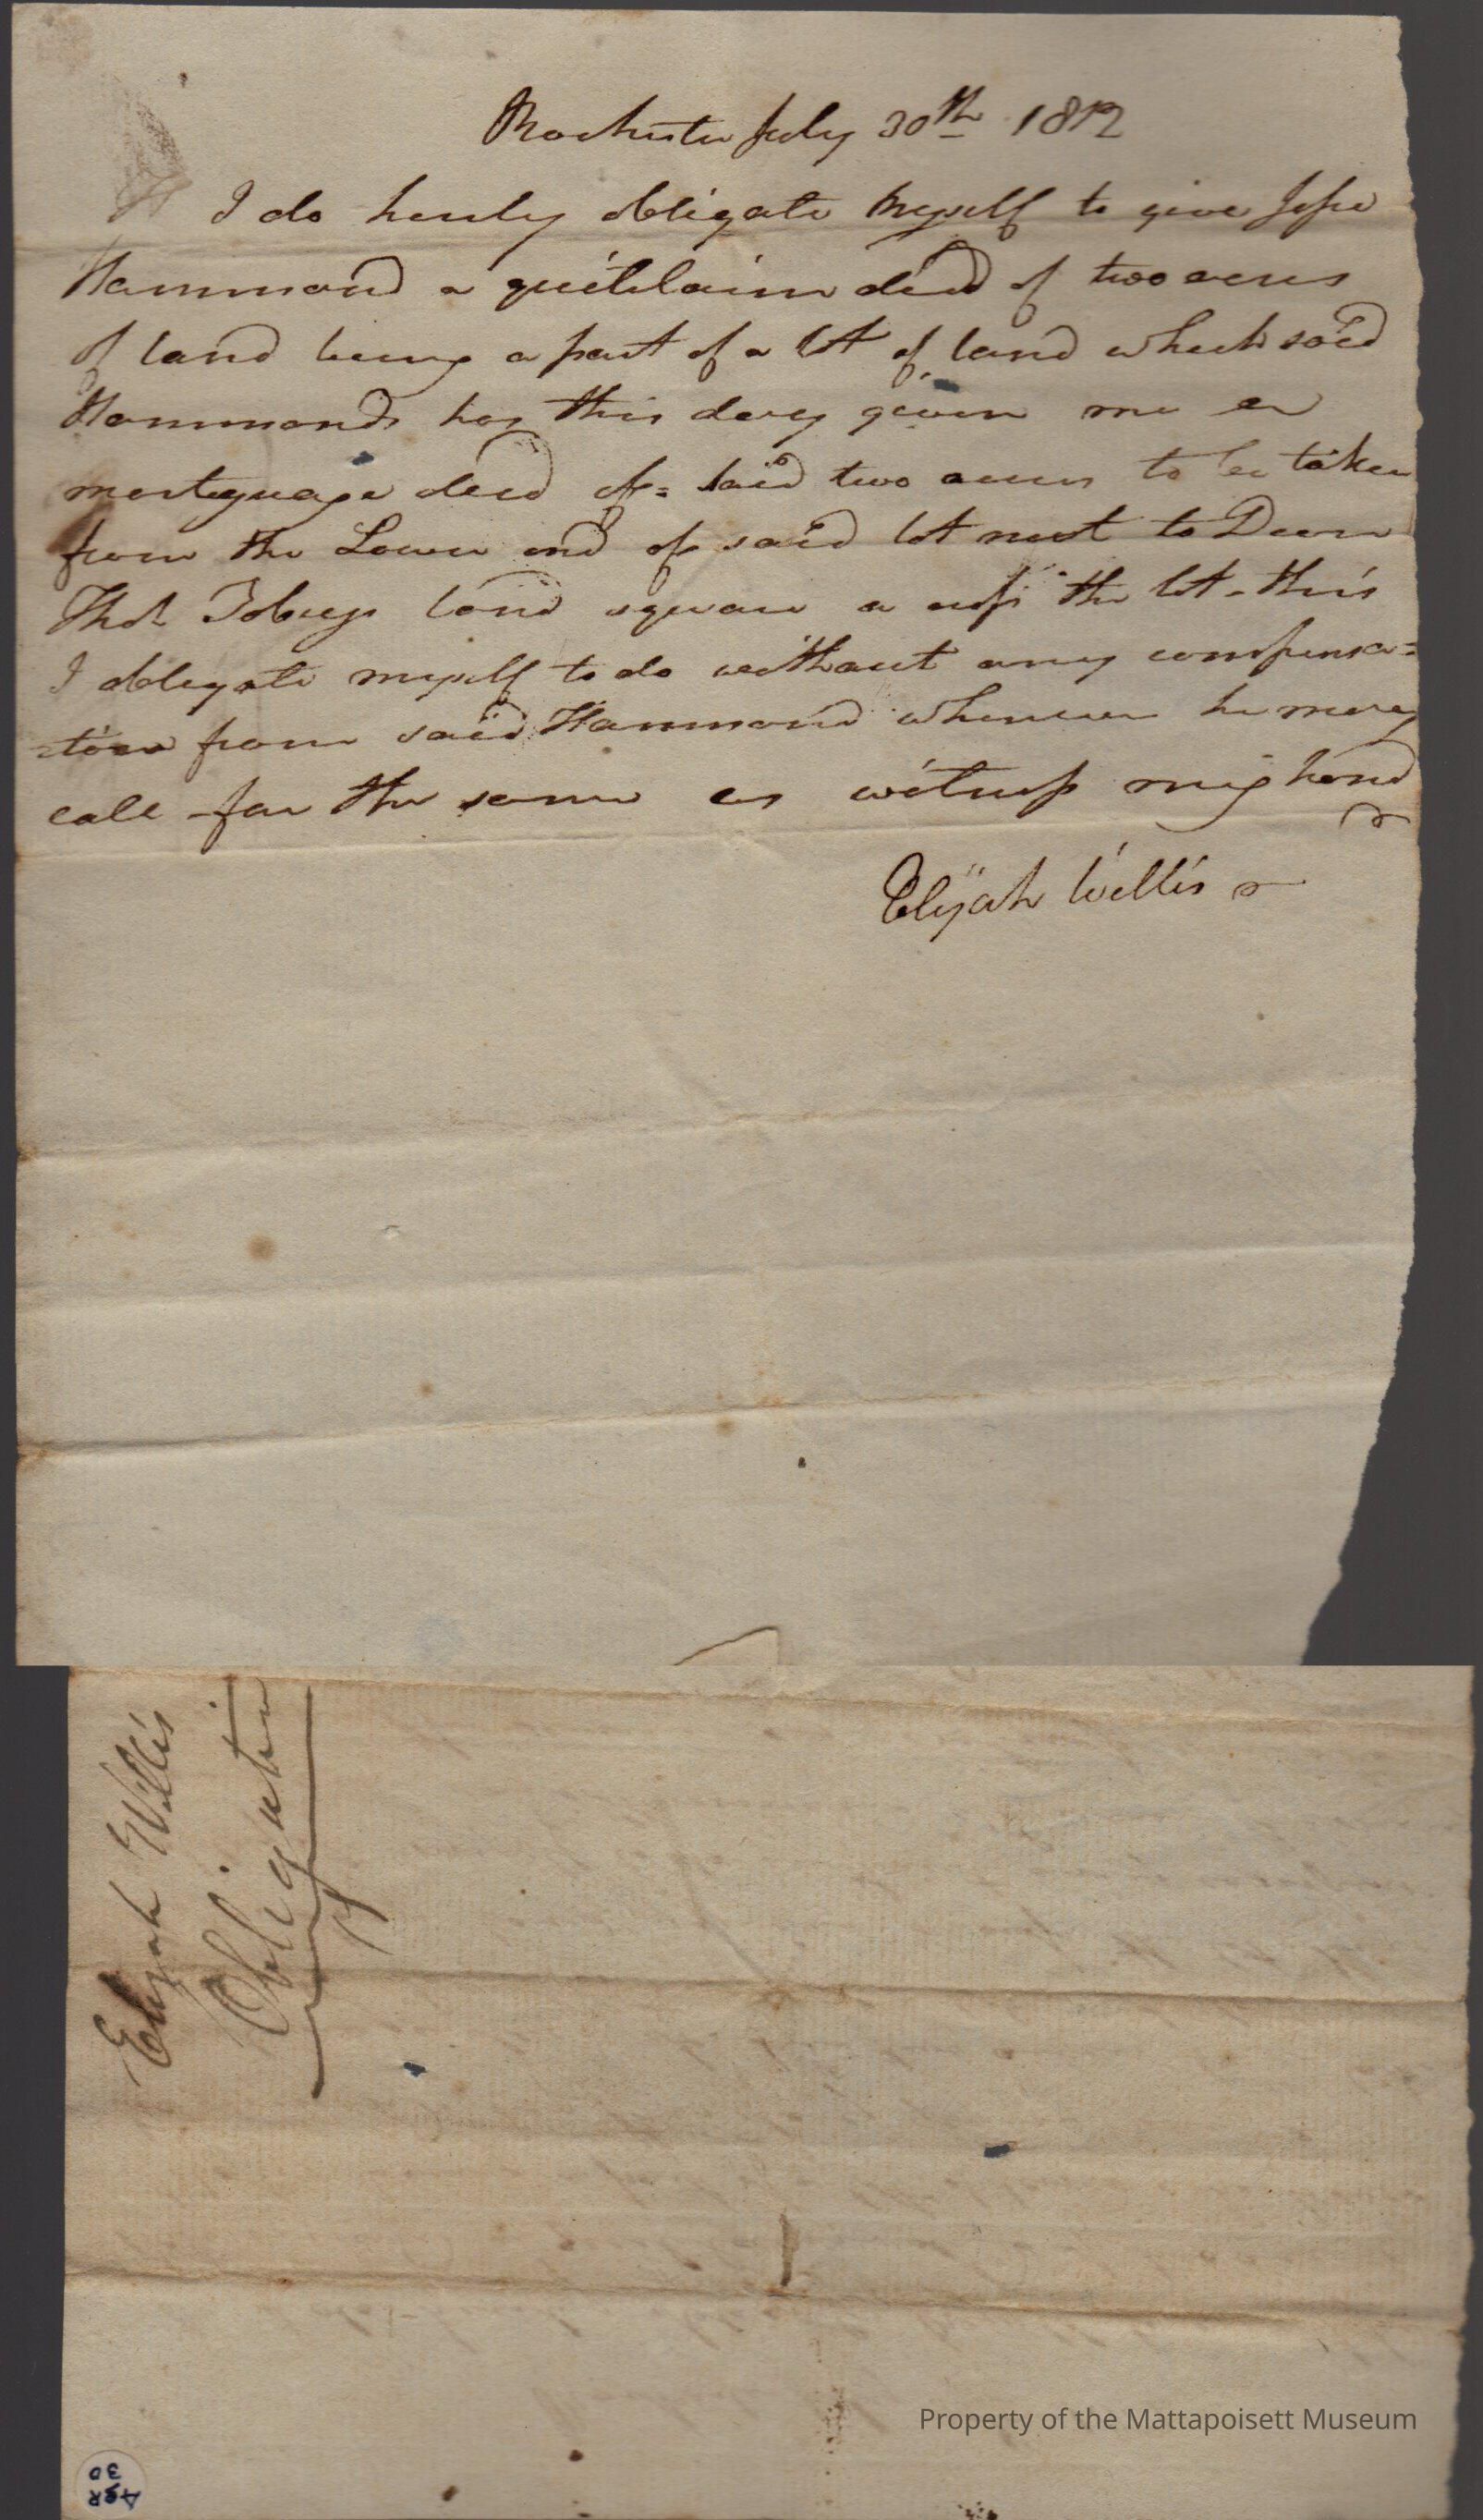 Rochester July 30th 1812
I do herely obligate myself to give Jesse
Hammond a quitclaim deed of two acres
of land being a part of a lot of land which said
Hammonds has this day given me a
morteguage deed of = said two acres to be taken
from the Lower end of said lot next to Decon
Tobeys land square a cross the lot - this
I obligate myself to do without any compensa=
=tion from said Hammond whenever he may
call for the same as witness my hand
Elijah Willis
Elijah Willis
Obligation
Property of the Mattapoisett Museum
A9R
30